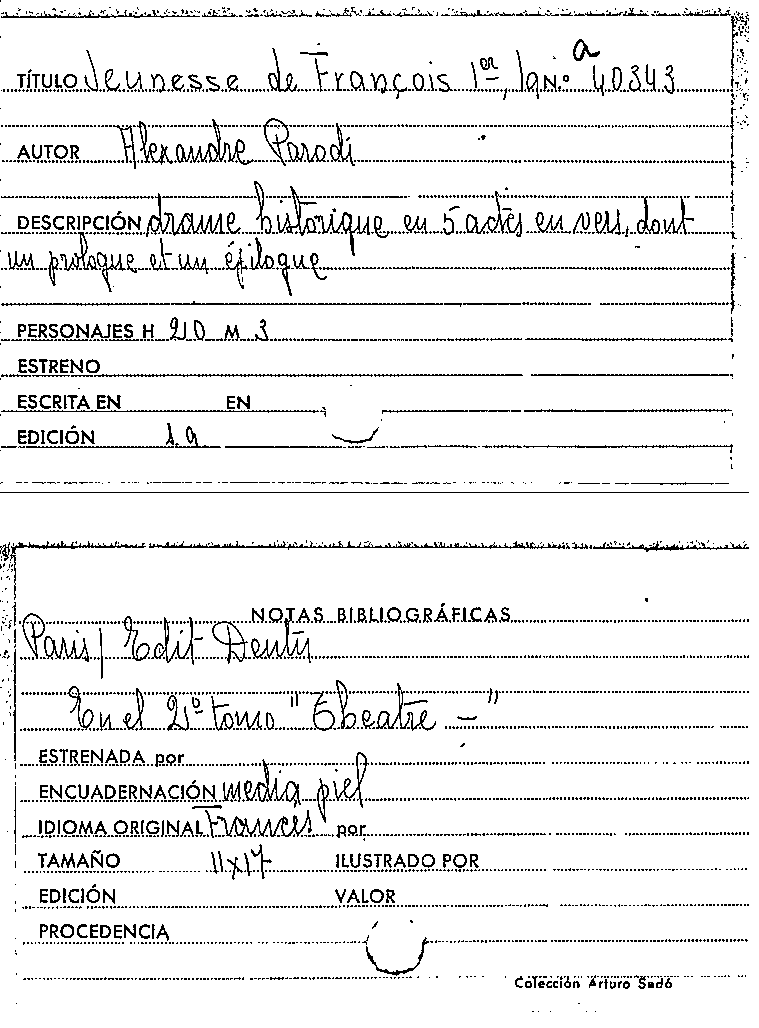 TÍTULO Jeunesse de François 1er, la N.º 40343
a
AUTOR Alexandre Parodi
DESCRIPCIÓN drame historique en 5 actes en vers, dont
un prologue et un épilogue
PERSONAJES H 20 M 3
ESTRENO
ESCRITA EN EN
EDICIÓN s.a
NOTAS BIBLIOGRÁFICAS
Paris/ Edit Dentu
En el 2º tomo "Theatre -"
ESTRENADA por
ENCUADERNACIÓN media piel
IDIOMA ORIGINAL Frances por
TAMAÑO 11x17 ILUSTRADO POR
EDICIÓN VALOR
PROCEDENCIA
Colección Arturo Sedó